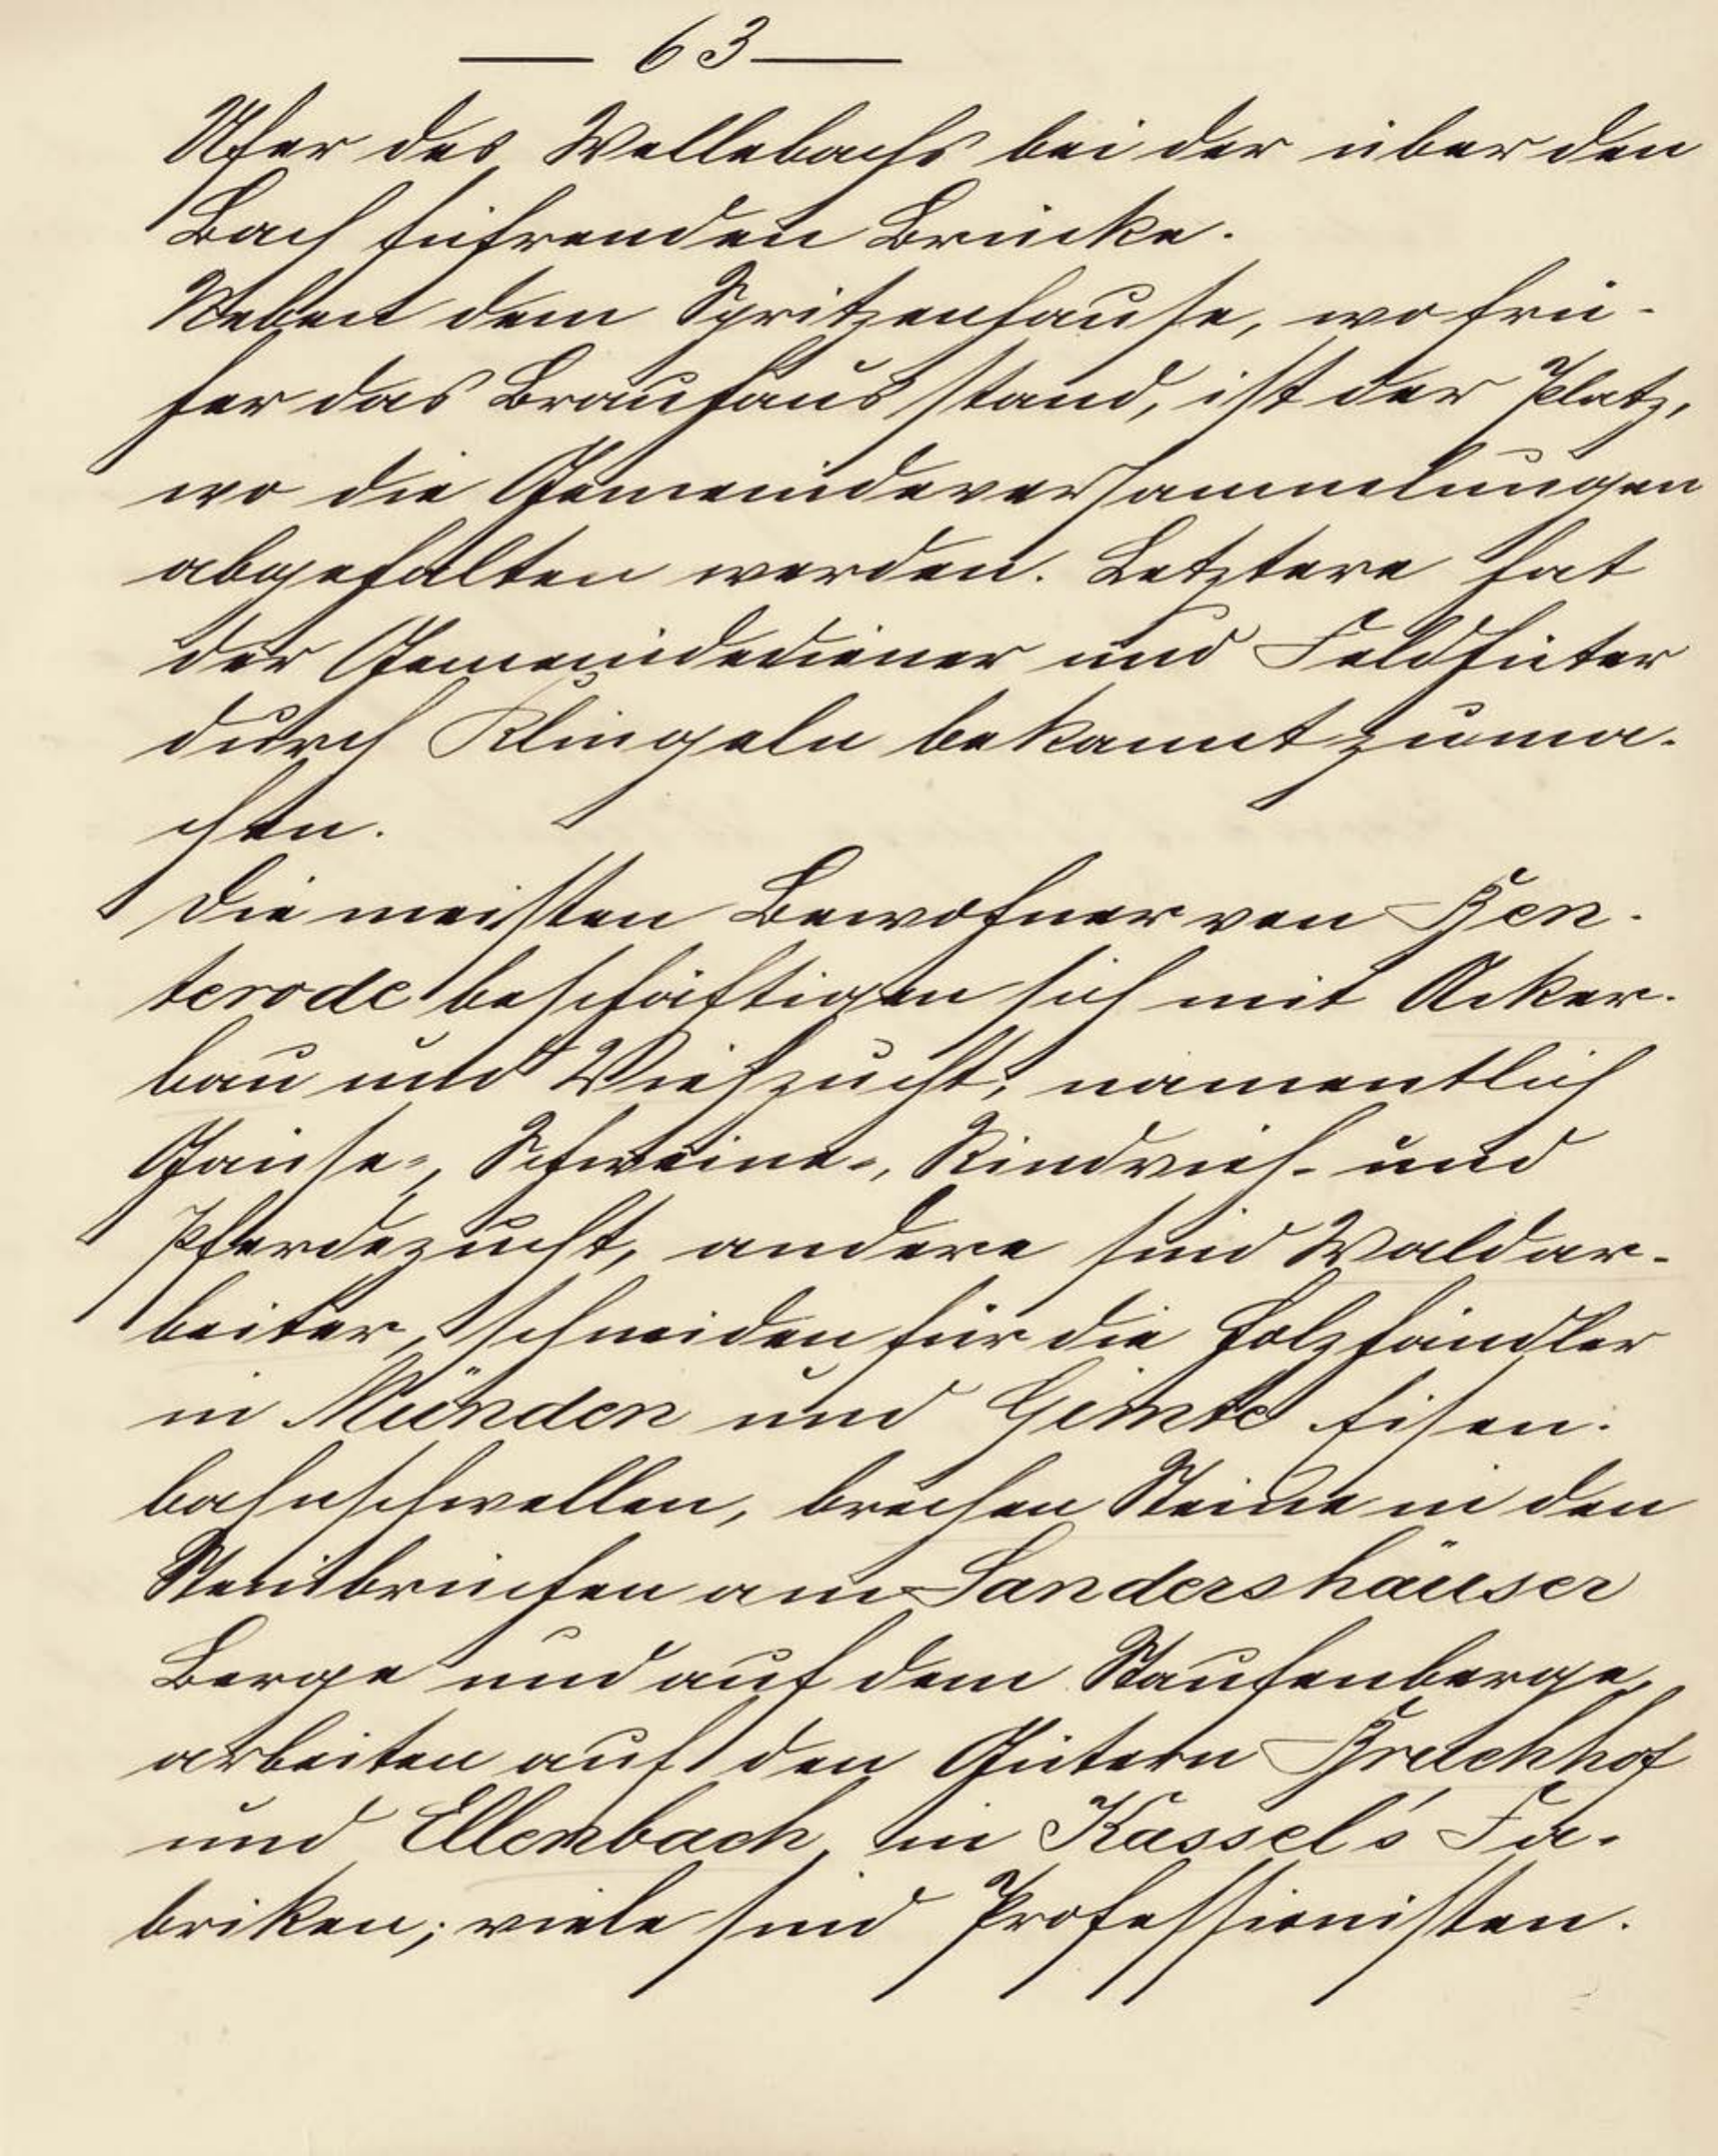 — 63 —
Ufer des Wellebachs bei der über den
Bach führenden Brücke.
Neben dem Spritzenhause, wo frü-
her das Brauhaus stand, ist der Platz,
wo die Gemeindeversammlungen
abgehalten werden. Letztere hat
der Gemeindediener und Feldhüter
durch Klingeln bekannt zu ma-
chen.
Die meisten Bewohner von Ben-
terode beschäftigen sich mit Acker-
bau und Viehzucht, namentlich
Gänse-, Schweine-, Rindvieh- und
Pferdezucht, andere sind Waldar-
beiter, schneiden für die Holzhändler
in Münden und Gimte Eisen-
bahnschwellen, brechen Steine in den
Steinbrüchen am Sandershäuser
Berge und auf dem Staufenberge,
arbeiten auf den Gütern Kragenhof
und Ellenbach, in Kassel's Fa-
briken; viele sind Professionisten.